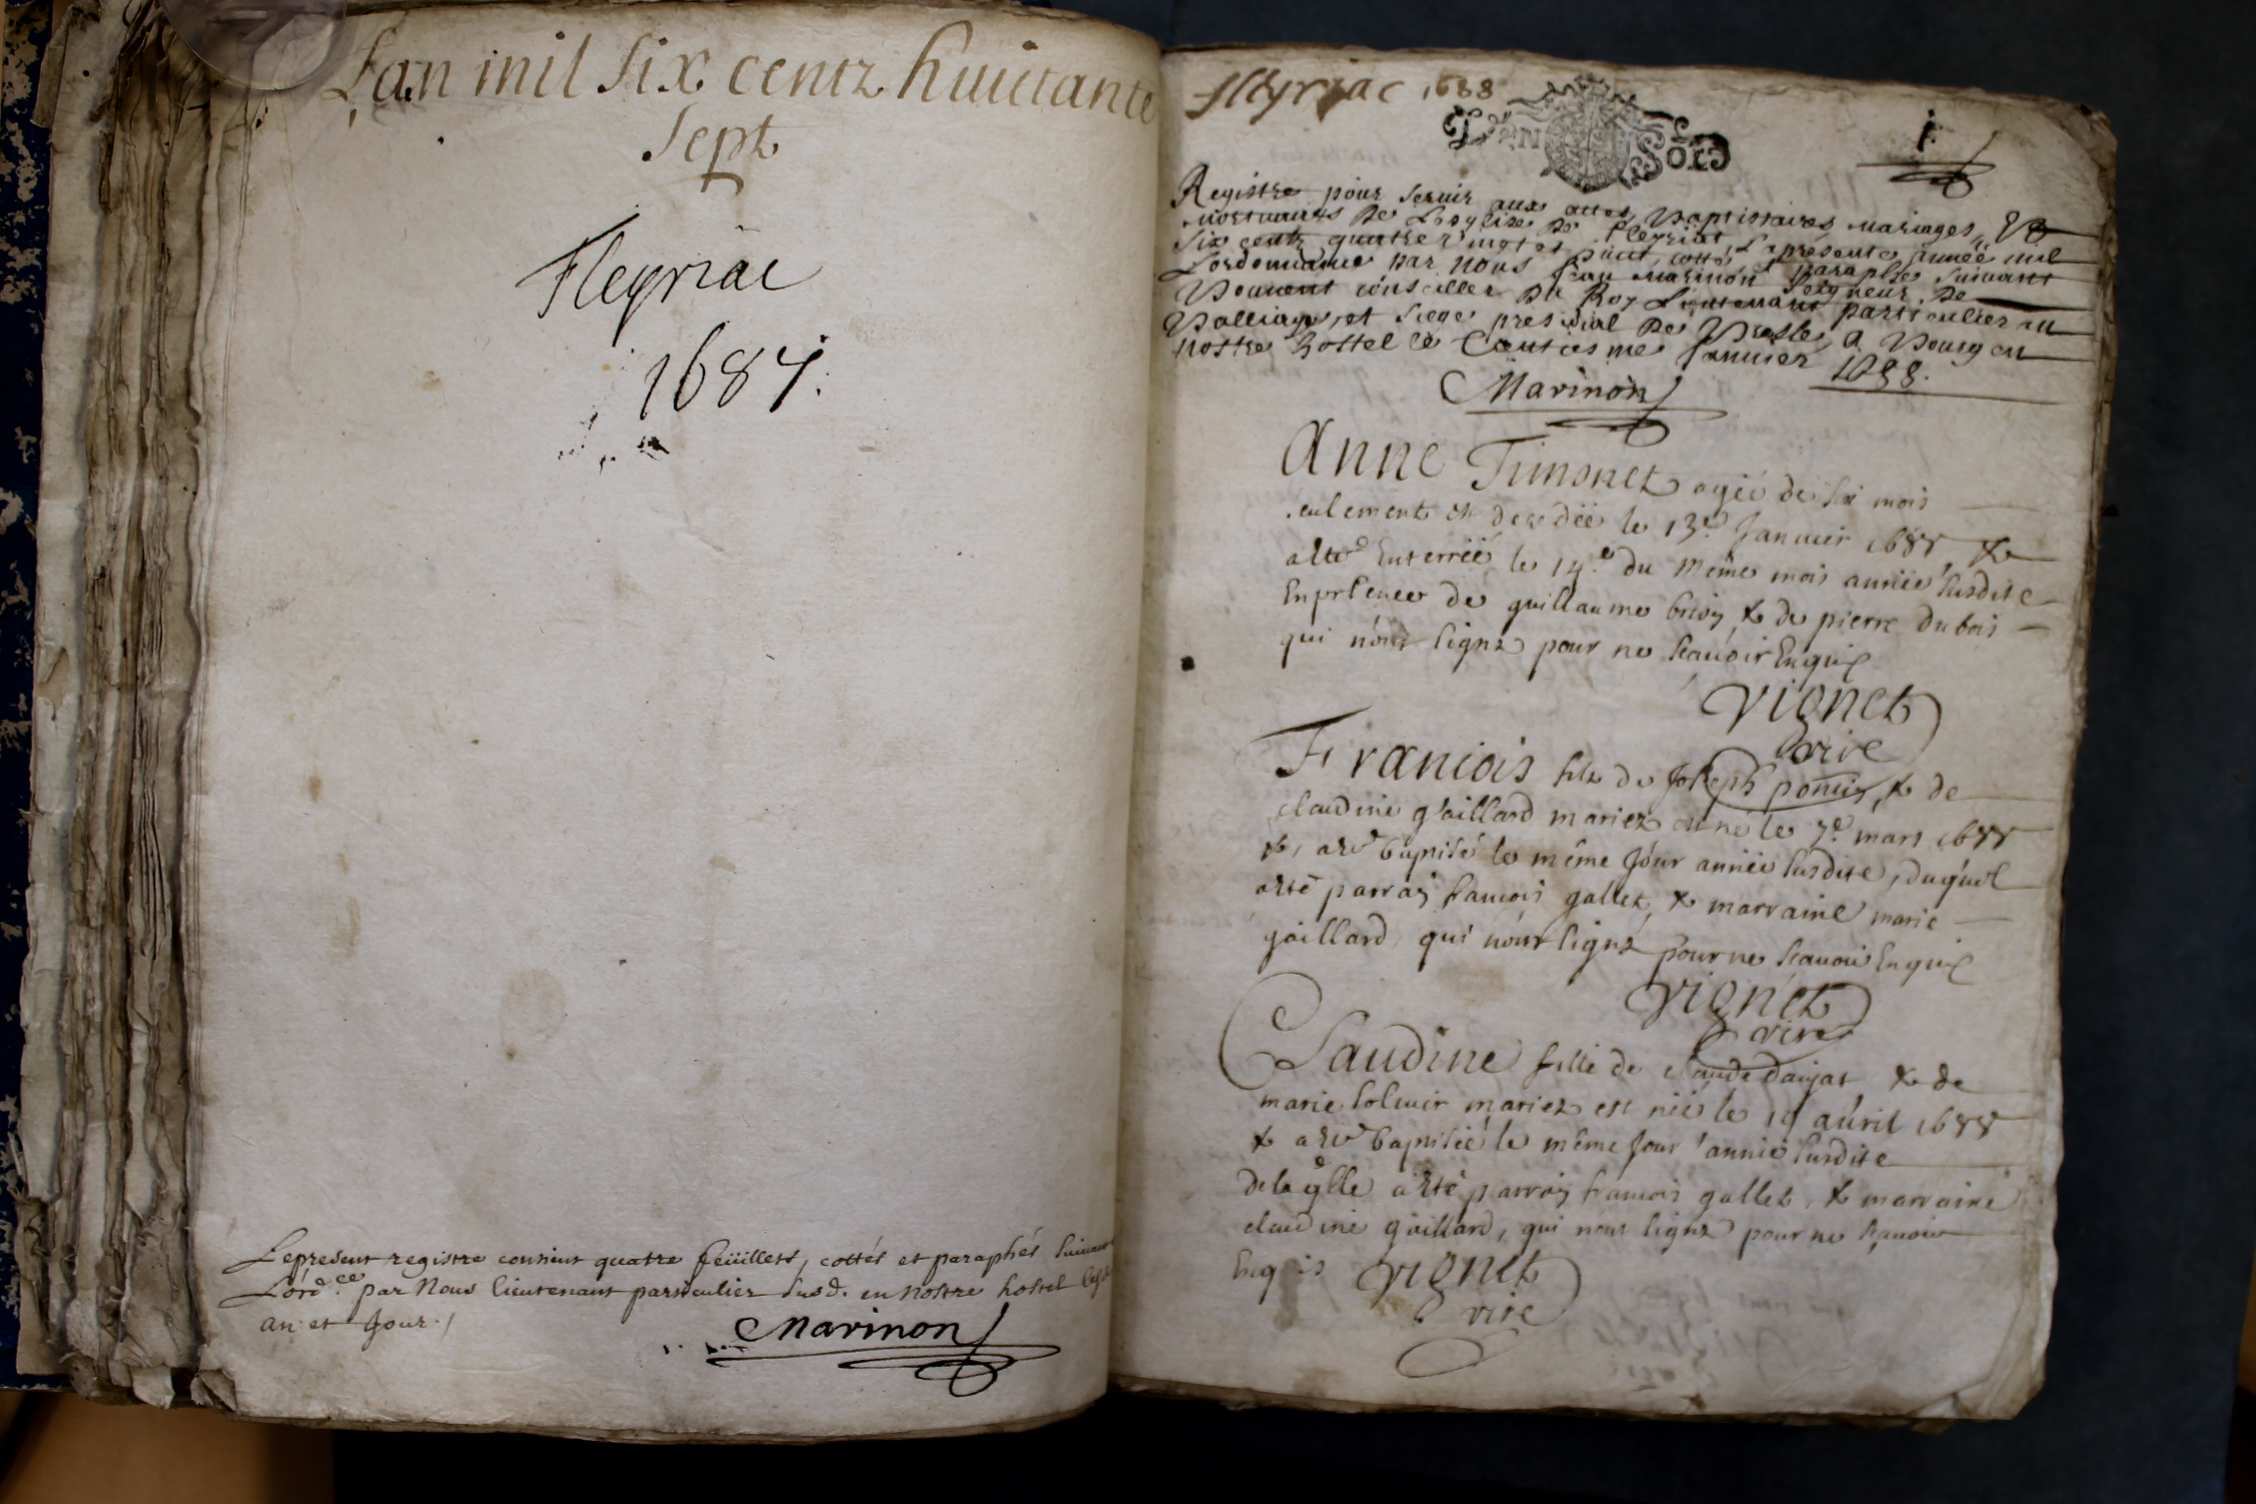 Lan mil six centz huictante
sept
Fleyriac
1687.
Le present registre contient quatre feüillets, cottés et paraphés suivant
Lord.ce par Nous lieutenant particulier susd. en nostre hostel
an et jour./
Marinon
ffleyriac 1688
1
Registre pour servir aux actes Baptistaires mariages, &
mortuaires de Leglize de Fleyriat, La presente année mil
six centz quatre vingt et huict, cotté & paraphé suivant
Lordonnance par nous Jean Marinon Seigneur de
conseiller du Roy Lieutenant particulier au
Balliage, et siege presidial de Bresse, a Bourg en
nostre hostel le Janvier 1688.
Marinon
Anne Timonet agéé de six mois
seulement est decedéé le 13.e Janvier 1688 &
a été Enterréé le 14.e du même mois annéé susdite
En presence de guillaume & de pierre dubois
qui n'ont signé pour ne scavoir Enquis
Vignet
vire
Francois filz de Joseph & de
claudine gaillard mariez est né le 7.e mars 1688
& a été baptisé le même Jour annéé susdite, duquel
a été parrain francois gallet, & marraine marie
gaillard, qui n'ont signé pour ne scavoir Enquis
Vignet
vire
Claudine fille de claude & de
marie mariez est néé le avril 1688
& a été baptiséé le même Jour annéé susdite
de laqlle a été parrain francois gallet, & marraine
claudine gaillard, qui n'ont signé pour ne scavoir
Enquis Vignet
vire